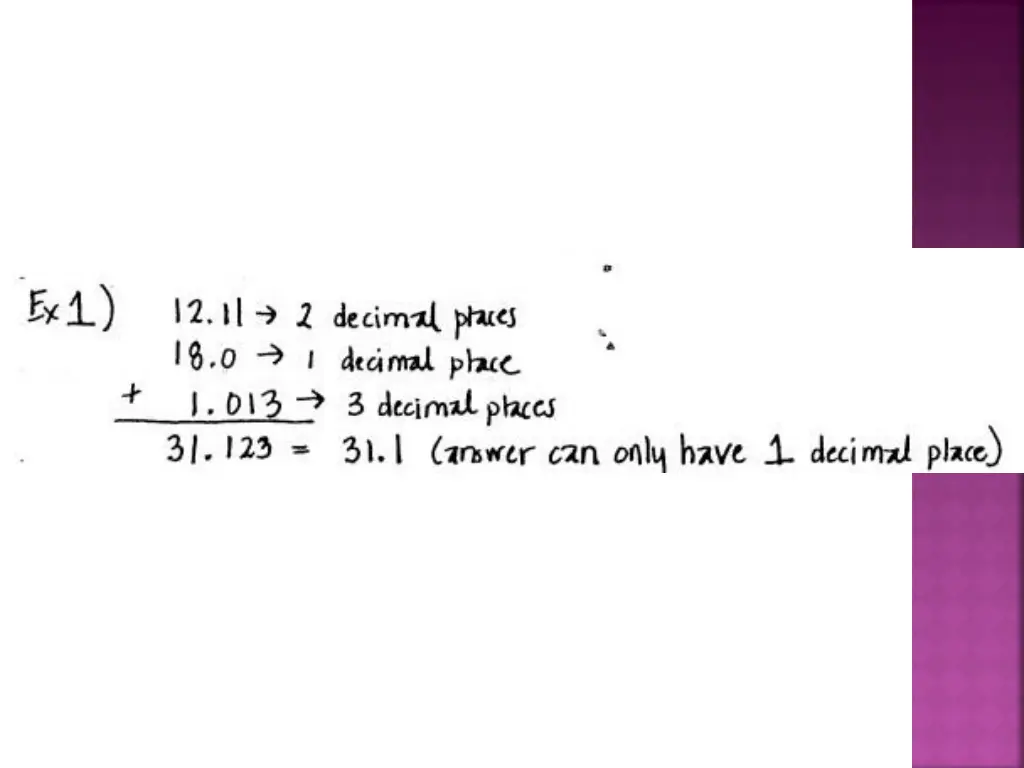 Ex 1) 12.11 → 2 decimal places
18.0 → 1 decimal place
+ 1.013 → 3 decimal places
31.123 = 31.1 (answer can only have 1 decimal place)